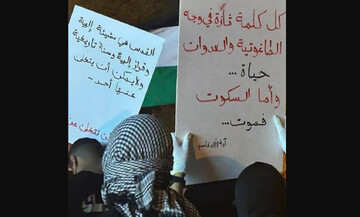 القدس هي مشيئة إلهية
وقرار إلهي وسنة تاريخية
ولا يمكن أن يتخلى
عنها أحد -
كل كلمة ثائرة في وجه
الطاغوتية والعدوان
حياة ...
وأما السكوت
فموت ...